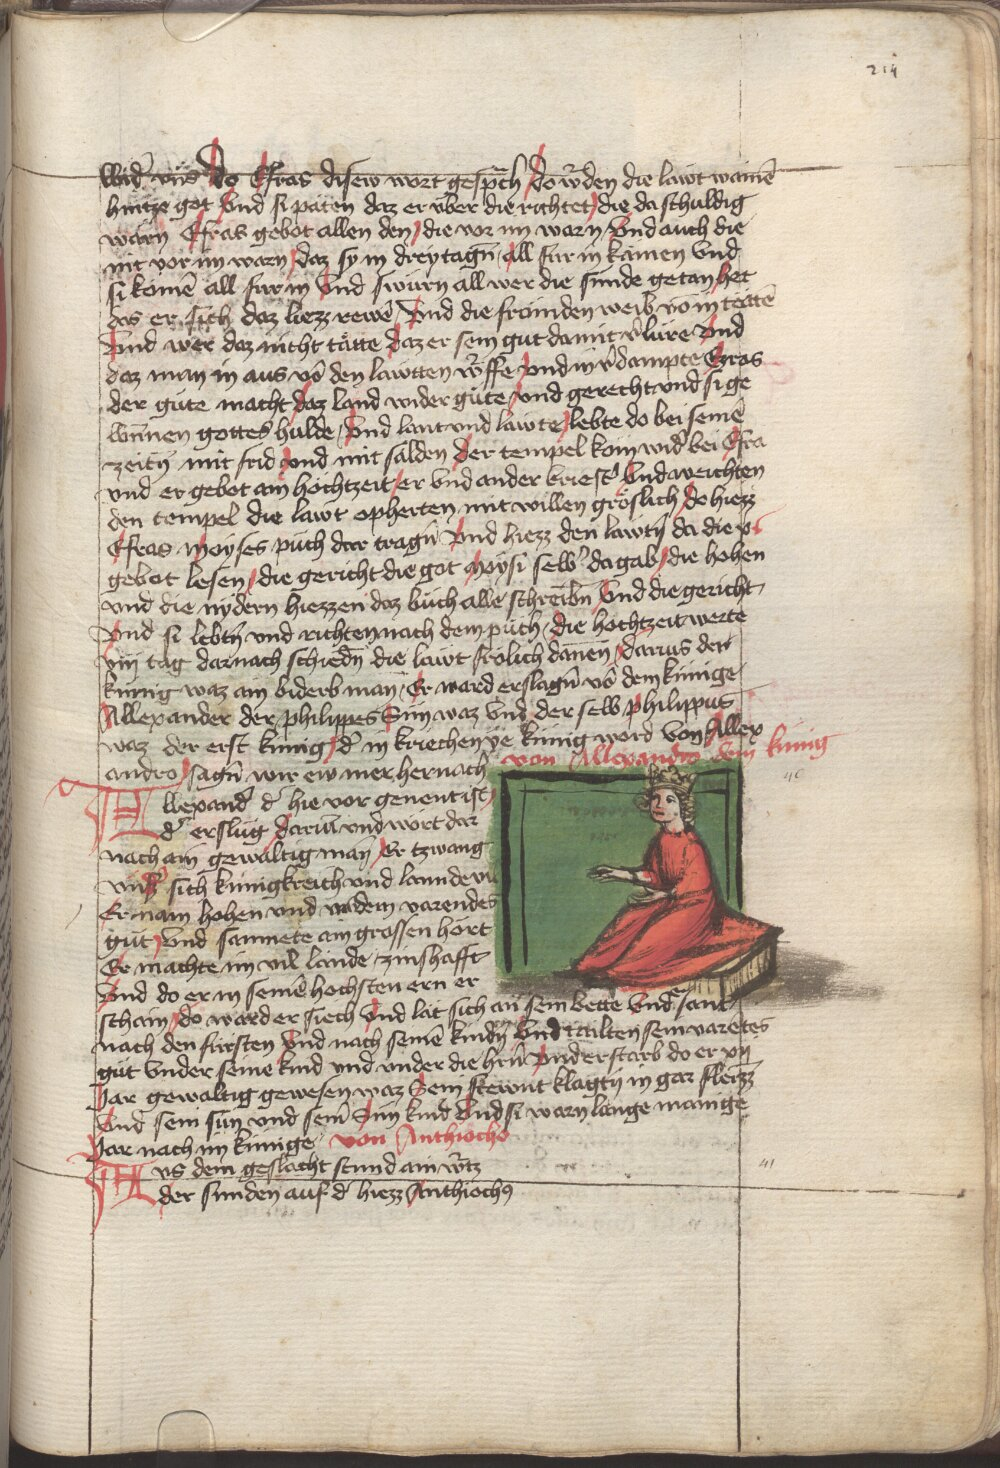 214
wid' uns Do Esras disew wort gesprach Do wurden die lawt wainē
hintze got Vnd si paten daz er über die richtet die da schuldig
warn Esras gebot allen den die vor im warn Vnd auch die
nit vor im warn daz sy in drey tagn̄ all für in kämen Vnd
si komē all für in Vnd swurn all wer die sünde getan het
das er sich daz liezz rewē Vnd die frömden weib võ in tettē
Vnd wer daz nicht tätte daz er sein gut damit v'lüre Vnd
daz man in aus võ den lawtten w'ffe Vnd in v'dampte Ezras
der güte macht daz land wider güte Vnd gerecht vnd si ge
wnnen gottes hulde Vnd lant vnd lawte lebte do bei seinē
zeitn̄ mit frid Vnd mit sälden Der tempel kom wid' bei Esra
vnd er gebot ain hochtzeit er Vnd ander briest' Vnd weichten
den tempel die lawt opherten mit willen gröslich do hiezz
Esras Moyses püch dar tragn̄ Vnd hiezz den lawtn̄ da die x
gebot lesen die gericht die got Moysi selb' da gab die hohen
vnd die nydern hiezzen daz büch alle schreibn̄ Vnd die gericht
Vnd si lebtn̄ vnd richten nach dem püch die hochtzeit werte
viij tag darnach schiedn̄ die lawt frölich dannen Darius der
künig waz ain biderb man Er ward erslagn̄ võ dem künige
Allexander der philippes Sun waz Vnd der selb philippus
waz der erst künig d' in kriechen ye künig word Von Allex
andro sagn̄ wir ew mer hernach von Allexandro dem künig
40
Allexand' d' hie vor genent ist
d' erslug Darium vnd wort dar
nach ain gewaltig man Er tzwang
vnd' sich künigkreich vnd lannde vil
Er nam hohen vnd nidern varendes
güt Vnd samnete ain grossen hort
Er machte im vil lande zinshafft
Vnd do er in seinē hochsten ern er
schain do ward er siech Vnd lät sich an sein bette Vnd sant
nach den fürsten Vnd nach seinē kindn̄ Vnd tailten sein varētes
güt Vnder seine kind vnd vnder die hrn̄ Vnd erstarb do er xij
Jar gewaltig gewesen waz Sein frewnt klagtn̄ in gar fleizz
Vnd sein sün vnd seinē Sün kind Vnd si warn lange manige
Jar nach im künige von Anthiocho
41
Aus dem geslächt stund ain w'tz
der sunden auf d' hiezz Anthiochus